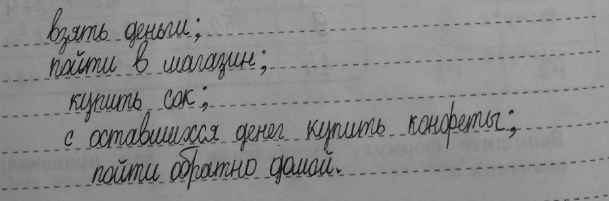 взять деньги;
пойти в магазин;
купить сок;
с оставшихся денег купить конфеты;
пойти обратно домой.